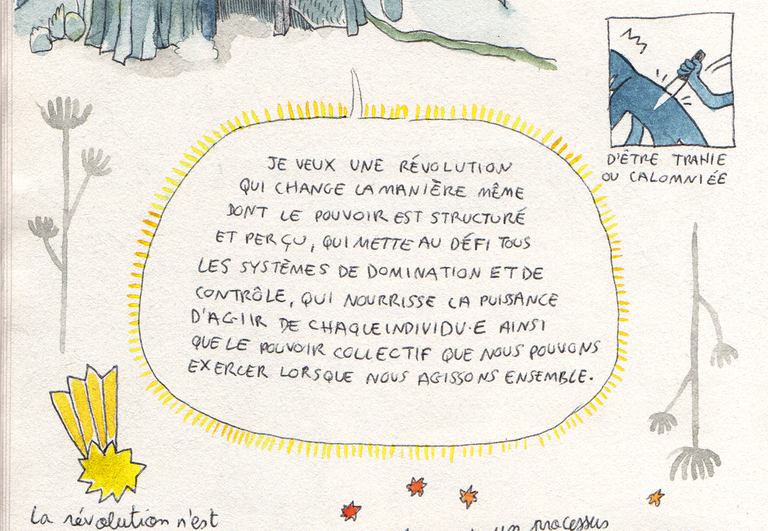 D'ÊTRE TRAHIE
OU CALOMNIÉE
JE VEUX UNE RÉVOLUTION
QUI CHANGE LA MANIÈRE MÊME
DONT LE POUVOIR EST STRUCTURÉ
ET PERÇU, QUI METTE AU DÉFI TOUS
LES SYSTÈMES DE DOMINATION ET DE
CONTRÔLE, QUI NOURRISSE LA PUISSANCE
D'AGIR DE CHAQUE INDIVIDU·E AINSI
QUE LE POUVOIR COLLECTIF QUE NOUS POUVONS
EXERCER LORSQUE NOUS AGISSONS ENSEMBLE.
La révolution n'est
un processus